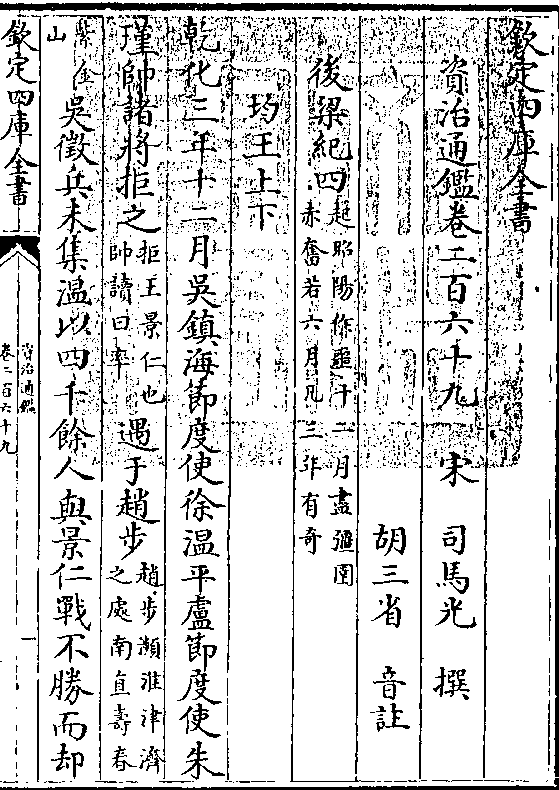 欽定四庫全書
資治通鑑卷二百六十九
宋 司馬光 撰
胡三省 音註
後梁紀四起昭陽作噩十二月盡彊圉
赤奮若六月凡三年有奇
均王上下
乾化三年十二月吳鎮海節度使徐溫平盧節度使朱
瑾帥諸將拒之拒王景仁也
帥讀曰率
遇于趙步趙步瀕淮津濟
之處南直壽春
紫金
山
吳徵兵未集溫以四千餘人與景仁戰不勝而却
欽定四庫全書
資治通鑑
卷二百六十九
一